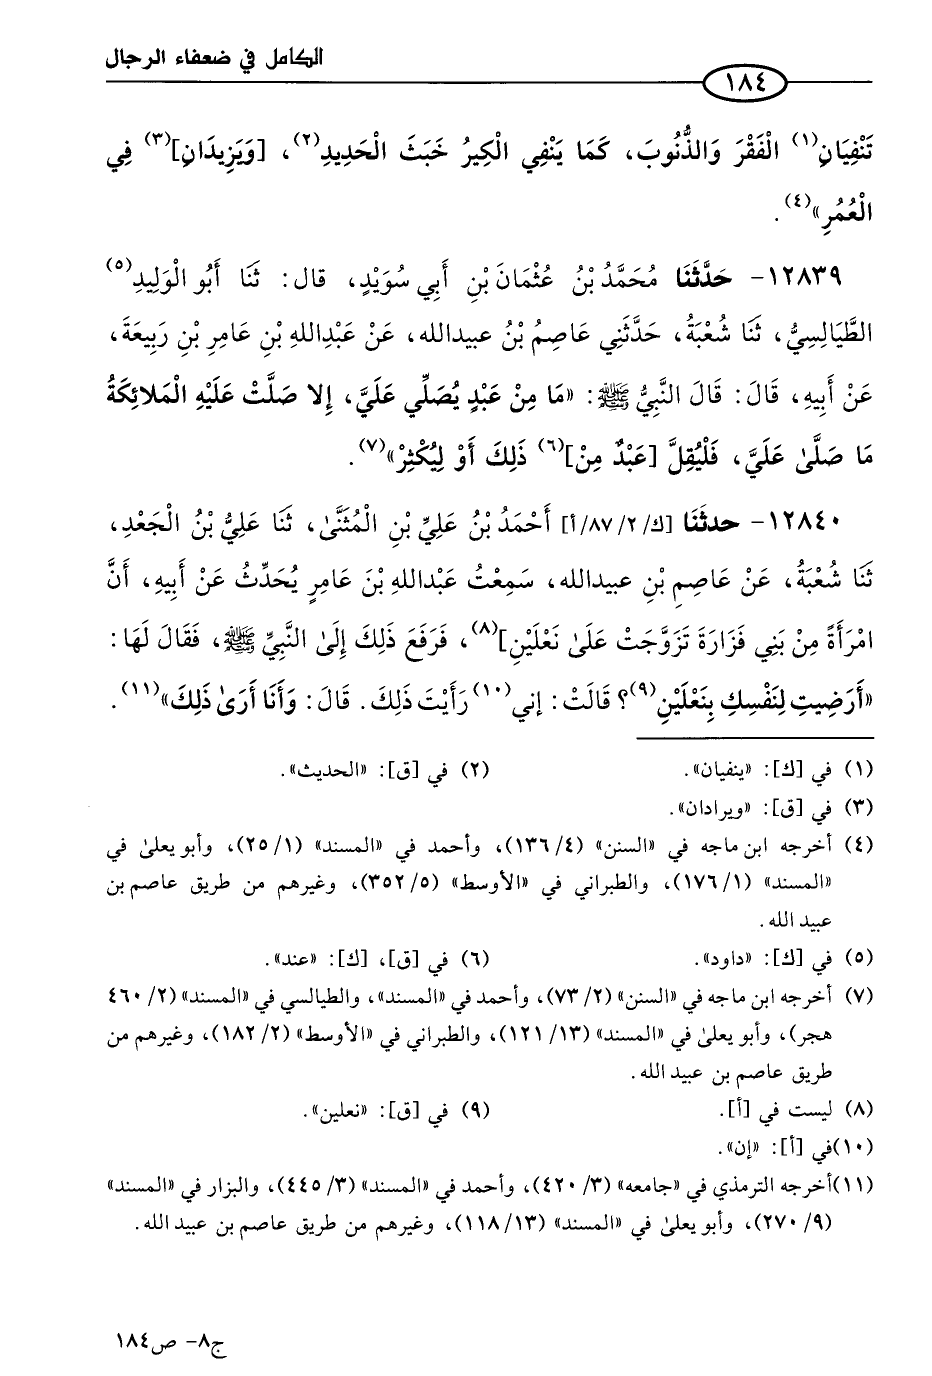 الكامل في ضعفاء الرجال
١٨٤
تَنْفِيَانِ(١) الْفَقْرَ وَالذُّنُوبَ، كَمَا يَنْفِي الْكِيرُ خَبَثَ الْحَدِيدِ(٢)، [وَيَزِيدَانِ](٣) فِي
الْعُمُرِ»(٤).
١٢٨٣٩- حَدَّثَنَا مُحَمَّدُ بْنُ عُثْمَانَ بْنِ أَبِي سُوَيْدٍ، قال: ثَنَا أَبُو الْوَلِيدِ(٥)
الطَّيَالِسِيُّ، ثَنَا شُعْبَةُ، حَدَّثَنِي عَاصِمُ بْنُ عبيدالله، عَنْ عَبْدِاللهِ بْنِ عَامِرِ بْنِ رَبِيعَةَ،
عَنْ أَبِيهِ، قَالَ: قَالَ النَّبِيُّ ﷺ: «مَا مِنْ عَبْدٍ يُصَلِّي عَلَيَّ، إِلا صَلَّتْ عَلَيْهِ الْمَلائِكَةُ
مَا صَلَّىٰ عَلَيَّ، فَلْيُقِلَّ [عَبْدٌ مِنْ](٦) ذَلِكَ أَوْ لِيُكْثِرْ»(٧).
١٢٨٤٠- حدثَنَا [ك/٢/٨٧/أ] أَحْمَدُ بْنُ عَلِيِّ بْنِ الْمُثَنَّىٰ، ثَنَا عَلِيُّ بْنُ الْجَعْدِ،
ثَنَا شُعْبَةُ، عَنْ عَاصِمِ بْنِ عبيدالله، سَمِعْتُ عَبْدَاللهِ بْنَ عَامِرٍ يُحَدِّثُ عَنْ أَبِيهِ، أَنَّ
امْرَأَةً مِنْ بَنِي فَزَارَةَ تَزَوَّجَتْ عَلَىٰ نَعْلَيْنِ](٨)، فَرَفَعَ ذَلِكَ إِلَىٰ النَّبِيِّ ﷺ، فَقَالَ لَهَا:
«أَرَضِيتِ لِنَفْسِكِ بِنَعْلَيْنِ(٩)؟ قَالَتْ: إني(١٠) رَأَيْتَ ذَلِكَ. قَالَ: وَأَنَا أَرَىٰ ذَلِكَ»(١١).
(١) في [ك]: «ينفيان». (٢) في [ق]: «الحديث».
(٣) في [ق]: «ويرادان».
(٤) أخرجه ابن ماجه في «السنن» (٤/ ١٣٦)، وأحمد في «المسند» (١/ ٢٥)، وأبو يعلىٰ في
«المسند» (١/ ١٧٦)، والطبراني في «الأوسط» (٥/ ٣٥٢)، وغيرهم من طريق عاصم بن
عبيد الله.
(٥) في [ك]: «داود». (٦) في [ق]، [ك]: «عند».
(٧) أخرجه ابن ماجه في «السنن» (٢/ ٧٣)، وأحمد في «المسند»، والطيالسي في «المسند» (٢/ ٤٦٠
هجر)، وأبو يعلىٰ في «المسند» (١٣/ ١٢١)، والطبراني في «الأوسط» (٢/ ١٨٢)، وغيرهم من
طريق عاصم بن عبيد الله.
(٨) ليست في [أ]. (٩) في [ق]: «نعلين».
(١٠) في [أ]: «إن».
(١١) أخرجه الترمذي في «جامعه» (٣/ ٤٢٠)، وأحمد في «المسند» (٣/ ٤٤٥)، والبزار في «المسند»
(٩/ ٢٧٠)، وأبو يعلىٰ في «المسند» (١٣/ ١١٨)، وغيرهم من طريق عاصم بن عبيد الله.
ج٨- ص١٨٤